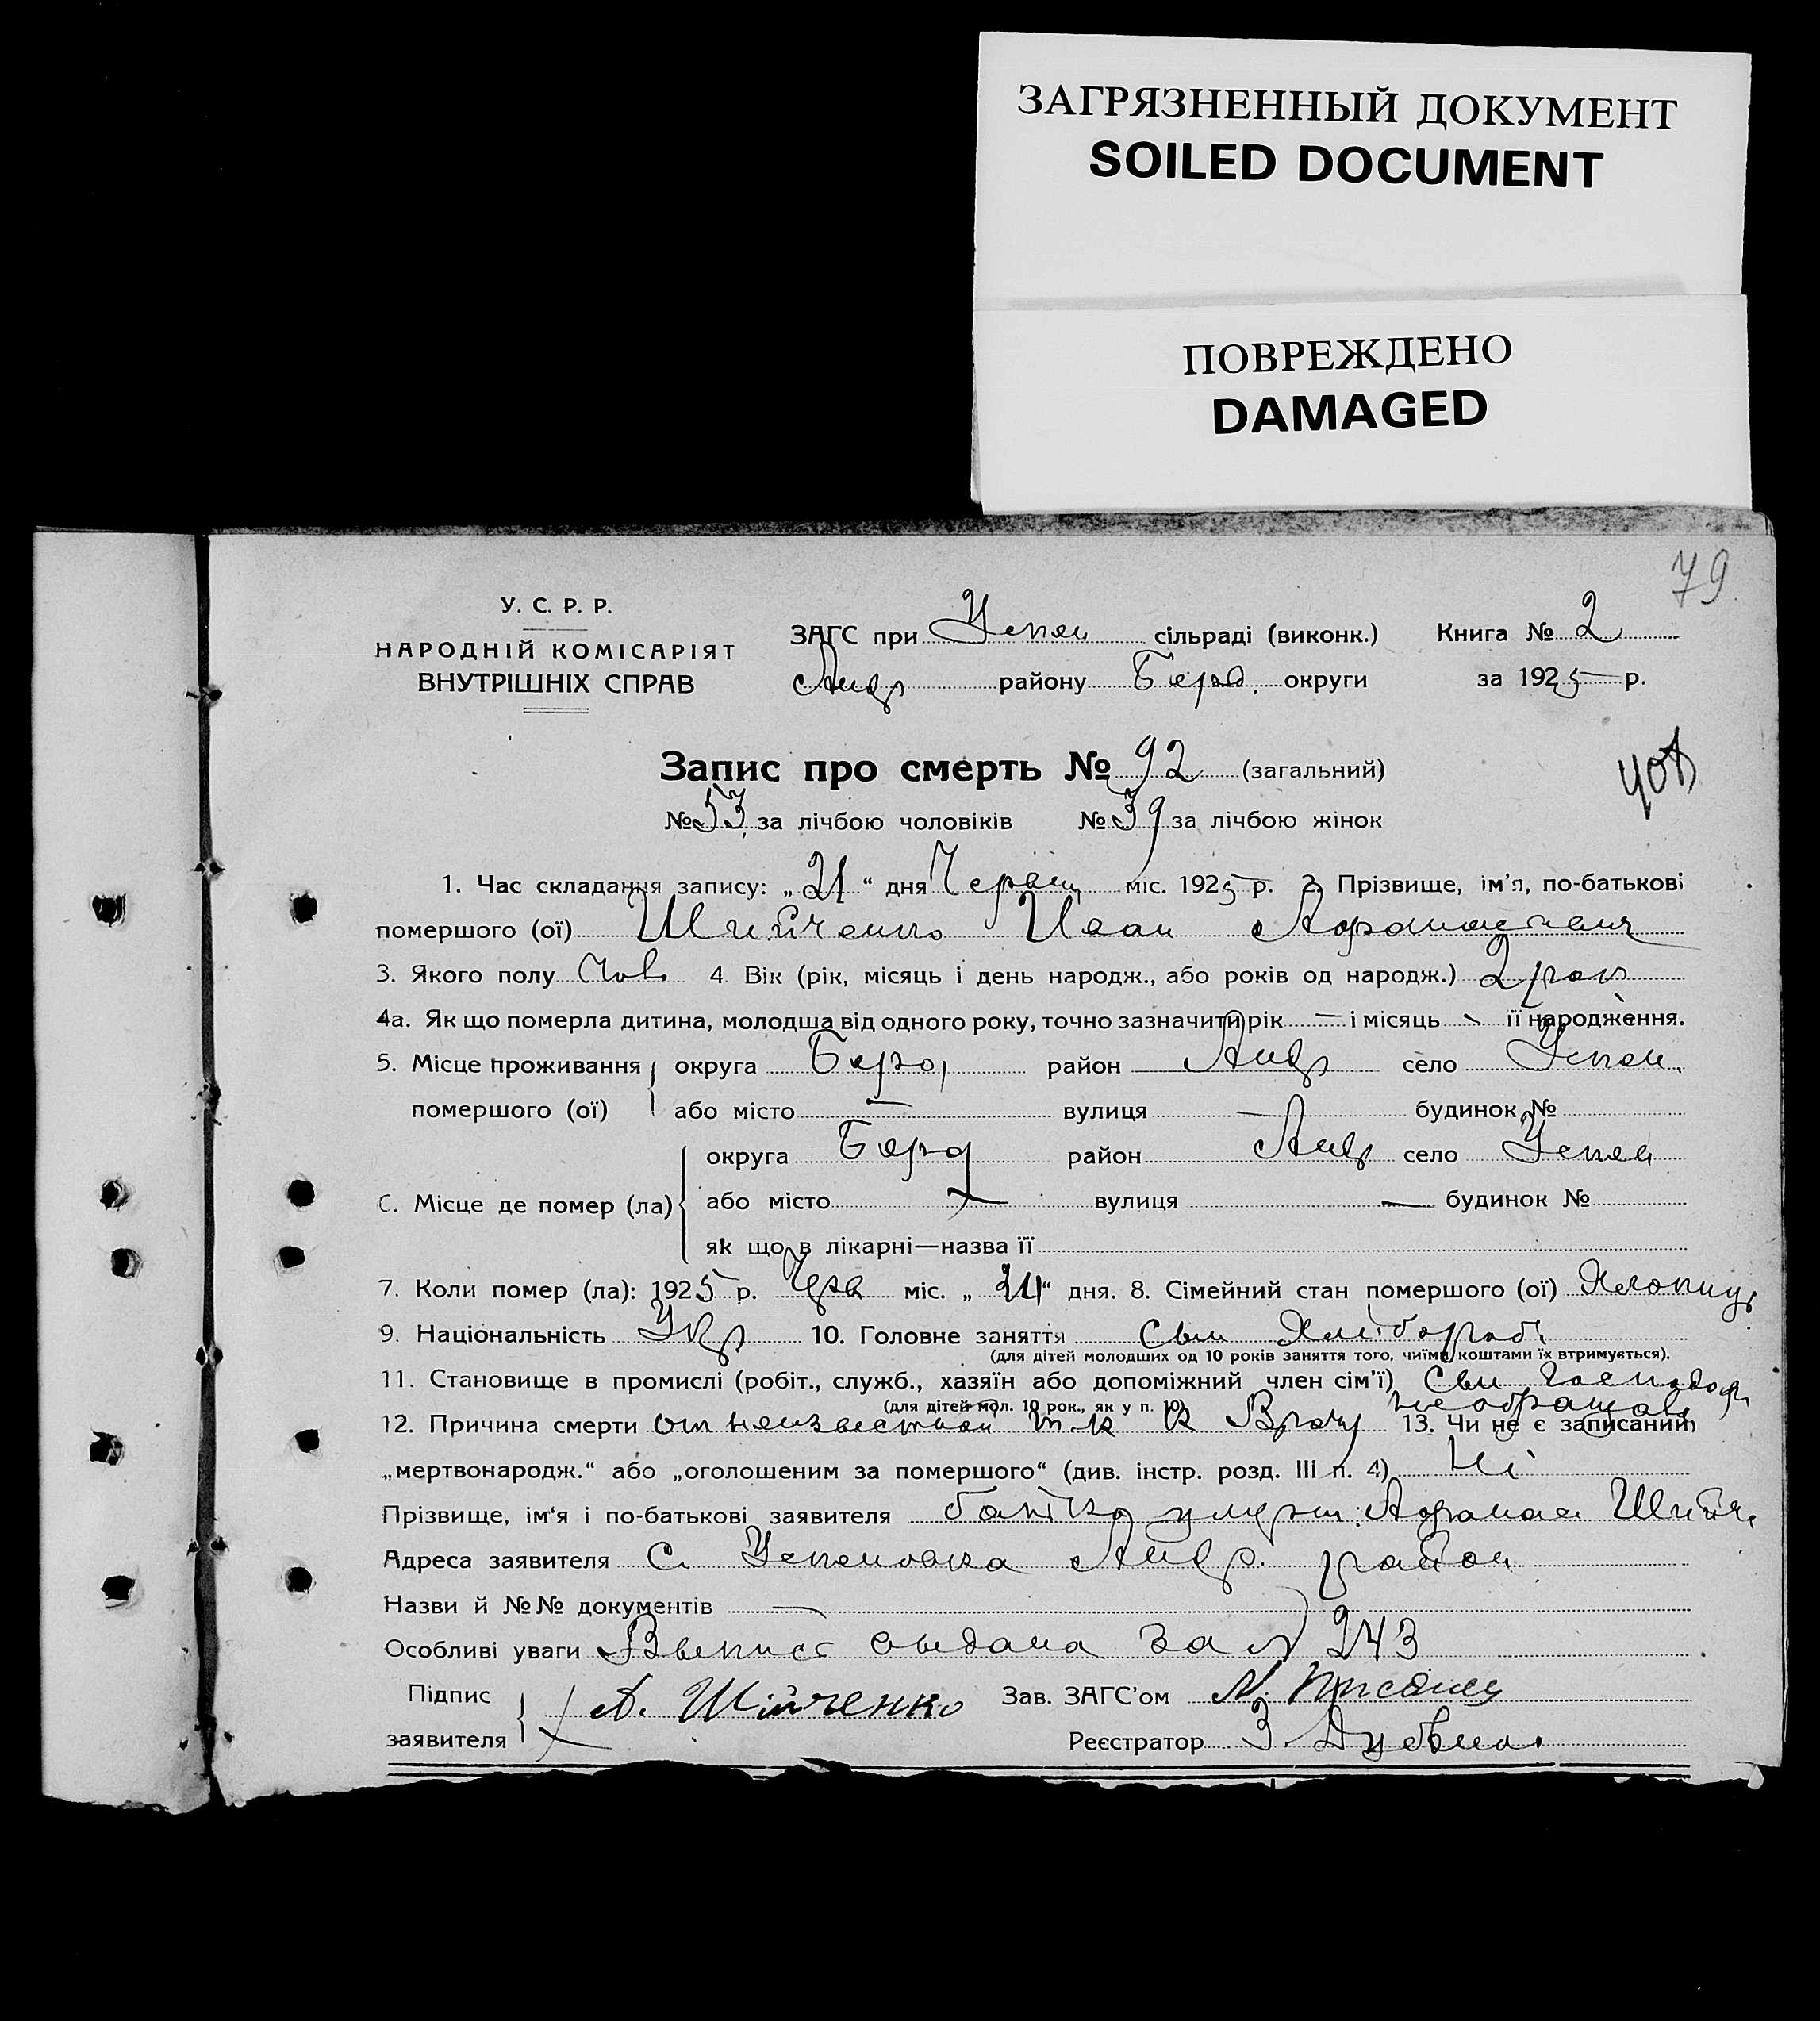 ЗАГРЯЗНЕННЫЙ ДОКУМЕНТ
SOILED DOCUMENT
ПОВРЕЖДЕНО
DAMAGED
79
У. С. Р. Р.
НАРОДНІЙ КОМІСАРІЯТ
ВНУТРІШНІХ СПРАВ
ЗАГС при Успен сільраді (виконк.) Книга № 2
Андр району Берд. округи за 1925 р.
Запис про смерть № 92 (загальний)
чол
№ 53 за лічбою чоловіків № 39 за лічбою жінок
1. Час складання запису: „21“ дня Червец міс. 1925 р. 2. Прізвище, ім'я, по-батькові
помершого (ої) Шийченко Иван Афанасиевич
3. Якого полу Чов. 4. Вік (рік, місяць і день народж., або років од народж.) 2 рок
4а. Як що померла дитина, молодша від одного року, точно зазначити рік — і місяць - її народження.
5. Місце проживання округа Берд, район Андр село Успен.
помершого (ої) або місто — вулиця — будинок №
округа Берд район Андр село Успен
6. Місце де помер (ла) або місто — вулиця — будинок №
як що в лікарні—назва її
7. Коли помер (ла): 1925 р. Чрв міс. „ “ дня. 8. Сімейний стан помершого (ої) Хлопиц
9. Національність Укр 10. Головне заняття Сын Хлібороб
(для дітей молодших од 10 років заняття того, чиїми коштами їх втримується).
11. Становище в промислі (робіт., служб., хазяїн або допоміжний член сім'ї) Сын Господар
(для дітей мол. 10 рок., як у п. 10)
необращав
12. Причина смерти от неизвестной т.к к Врачу 13. Чи не є записаний
„мертвонародж.“ або „оголошеним за помершого“ (див. інстр. розд. III п. 4) Ні
Прізвище, ім'я і по-батькові заявителя батько умерш. Афанасі Шийч.
Адреса заявителя С. Успеновка Андр. район
Назви й №№ документів —
Особливі уваги Выпись выдана за № 243
Підпис заявителя А. Шійченко Зав. ЗАГС'ом
Реєстратор З.